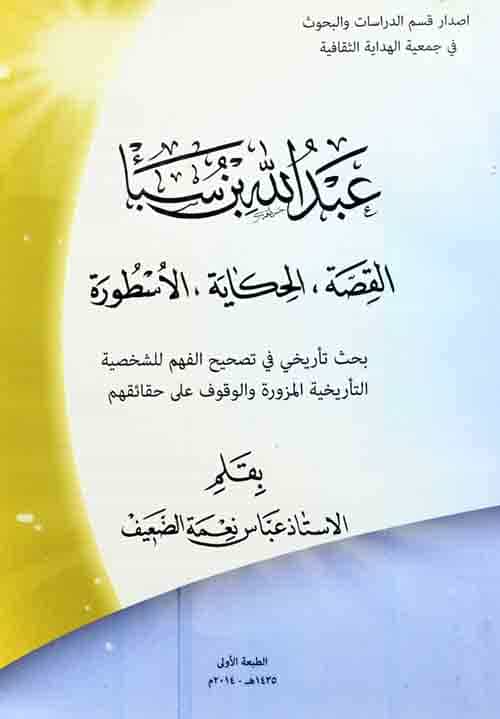 اصدار قسم الدراسات والبحوث
في جمعية الهداية الثقافية
عَبْدُ اللهِ بْنِ سُبَأْ
القِصَّة ، الحِكَايَة ، الأُسْطُورَة
بحث تأريخي في تصحيح الفهم للشخصية
التأريخية المزورة والوقوف على حقائقهم
بِقَلَمِ
الاستاذ عَبَّاس نِعْمَة الضَّعِيف
الطبعة الأولى
١٤٣٥هـ - ٢٠١٤م